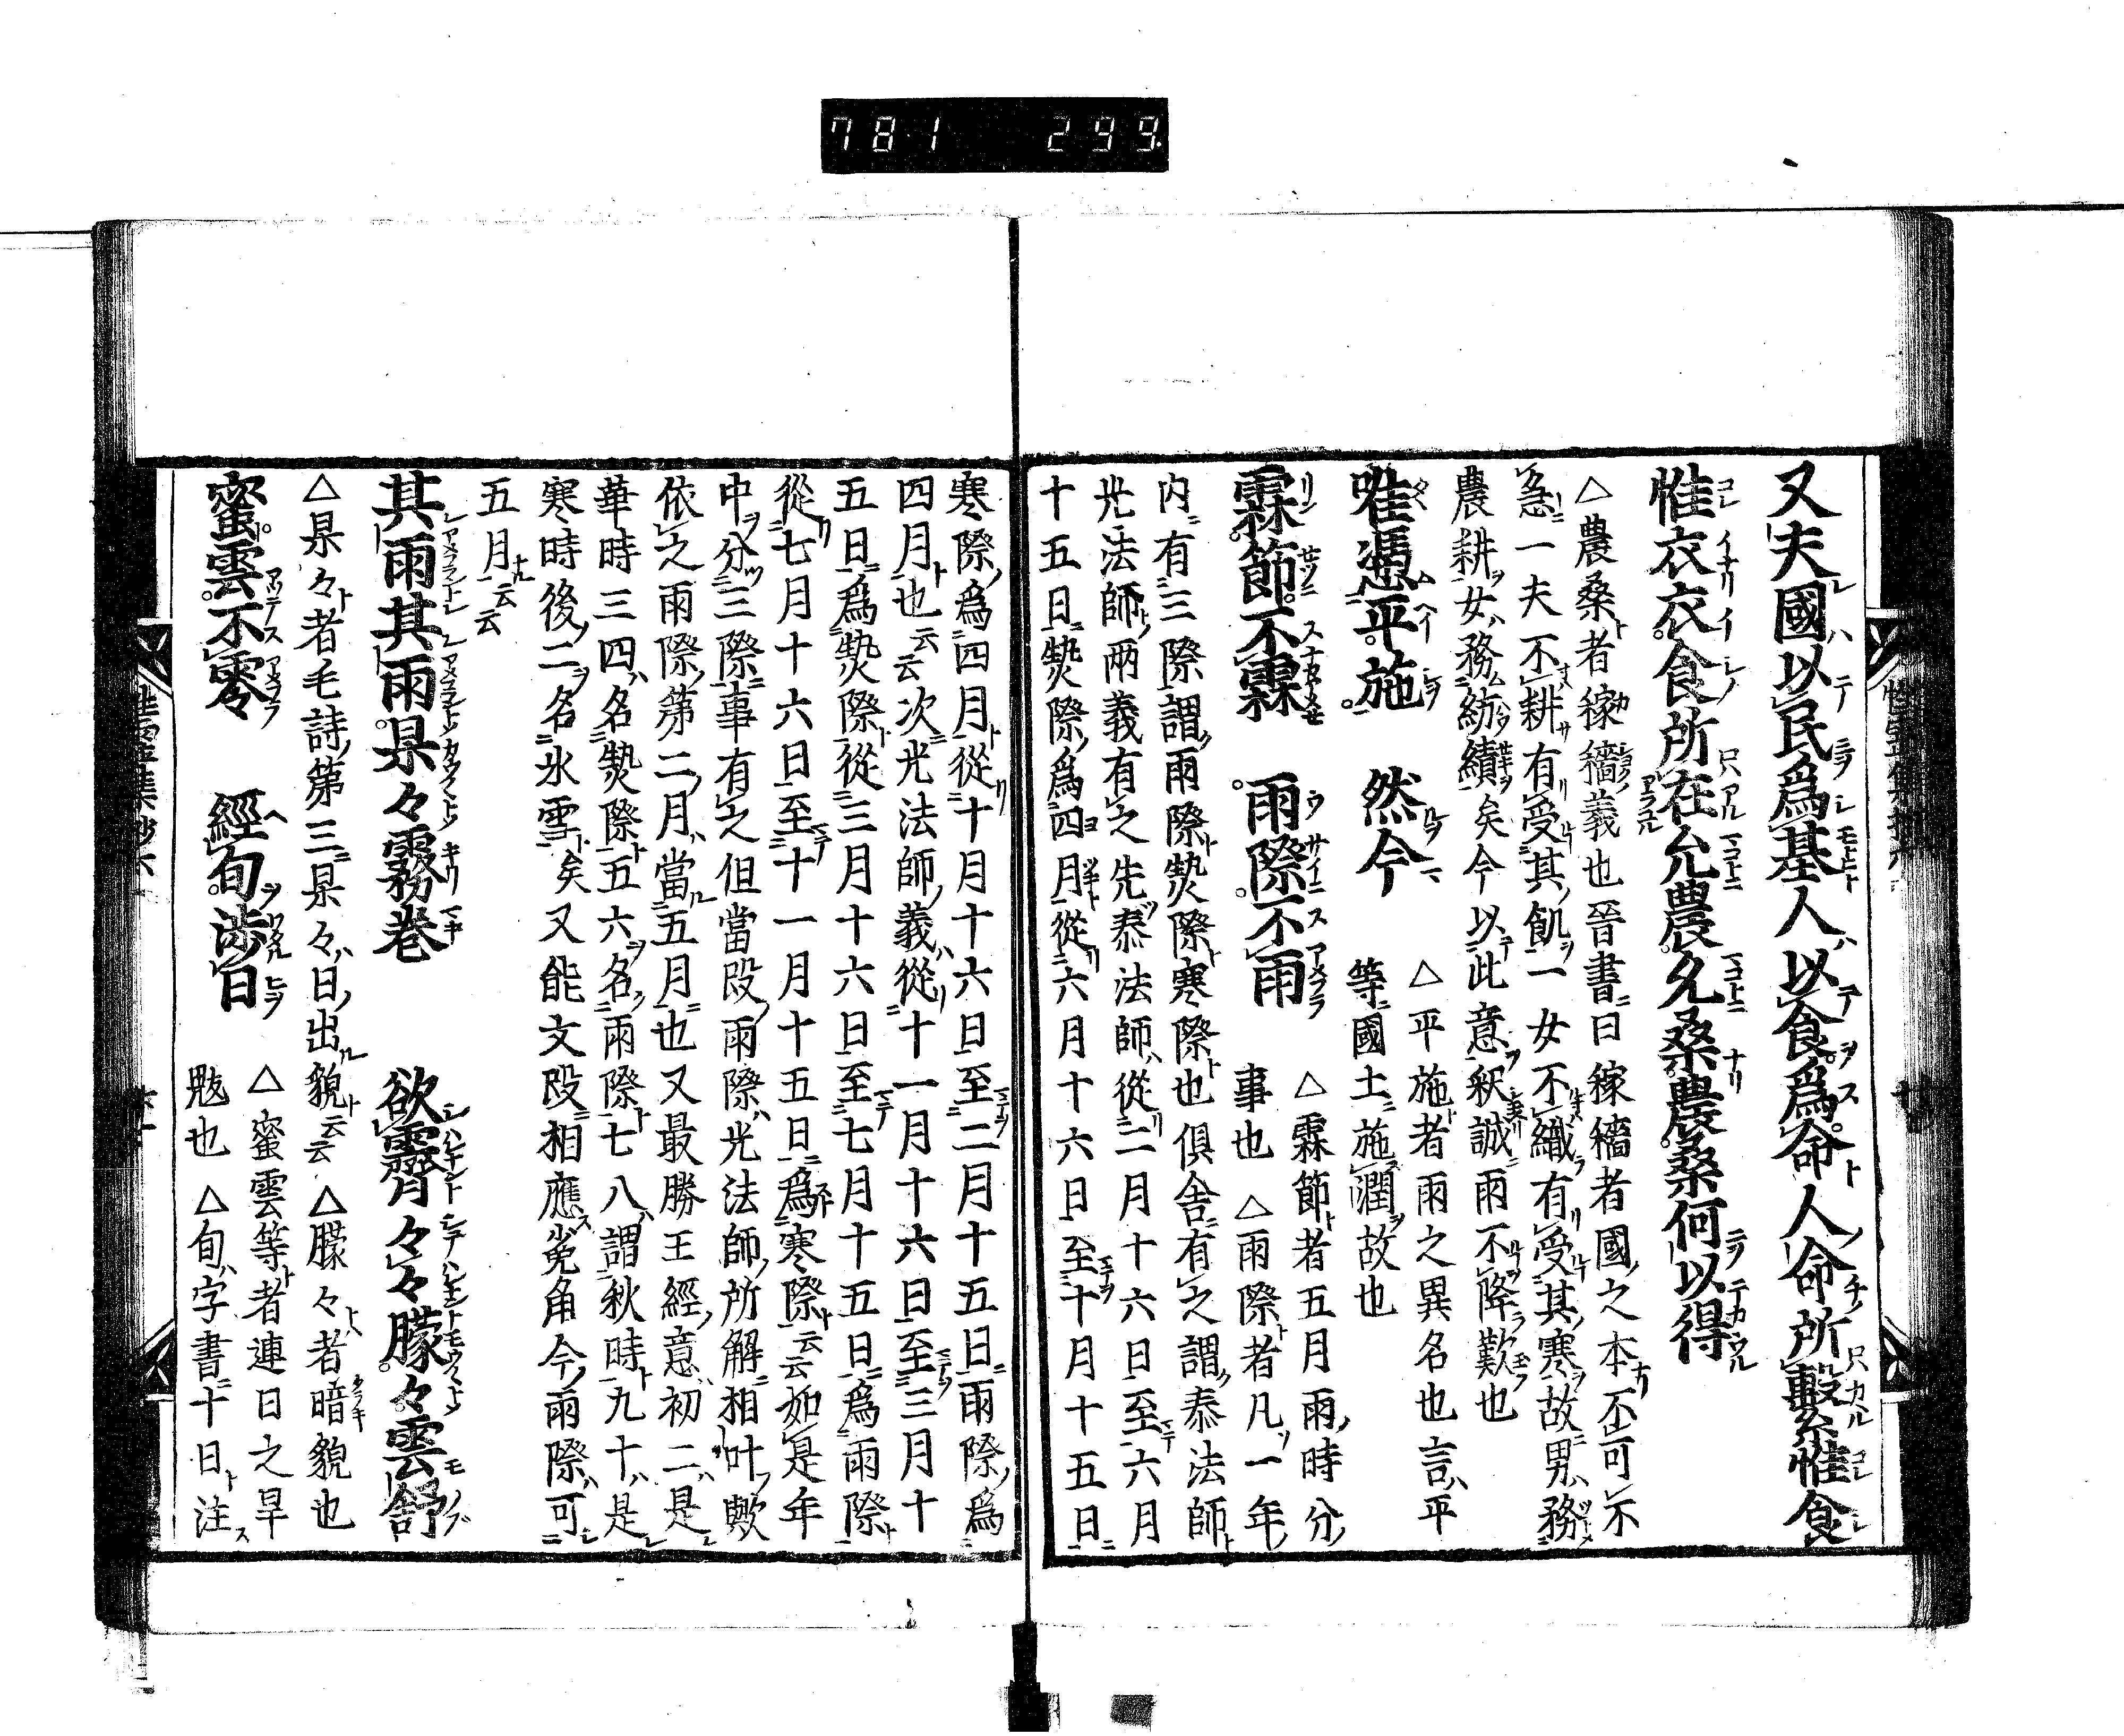 781 299.
又夫國以民爲基人以食爲命人命所繫惟食
惟衣衣食所在允農允桑農桑何以得
△農桑者稼穡義也晉書曰稼穡者國之本不可不
急一夫不耕有受其飢一女不織有受其寒故男務
農耕女務紡績矣今以此意釈誠雨不降歎也
唯憑平施 然今 △平施者雨之異名也言平
等國土施潤故也
霖節不霖 雨際不雨 △霖節者五月雨時分
事也 △雨際者凡一年
内有三際謂雨際熱際寒際也俱舍有之謂泰法師
光法師兩義有之先泰法師從二月十六日至六月
十五日熱際爲四月從六月十六日至十月十五日
寒際爲四月從十月十六日至二月十五日雨際爲
四月也云云次光法師義從十一月十六日至三月十
五日爲熱際從三月十六日至七月十五日爲雨際
從七月十六日至十一月十五日爲寒際云云如是年
中分三際事有之但當段雨際光法師所解相叶歟
依之雨際第二月當五月也又最勝王經意初二是
華時三四名熱際五六名雨際七八謂秋時九十是
寒時後二名氷雪矣又能文段相應者角今雨際可
五月云云
其雨其雨杲々霧巻 欲霽々々朦々雲舒
△杲々者毛詩第三杲々日出貌云云△朦々者暗貌也
蜜雲不零 經旬渉旨 △蜜雲等者連日之旱
魃也 △旬字書十日注